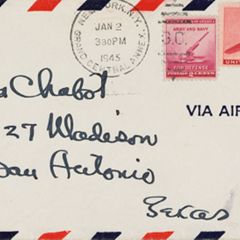 NEW YORK, N.Y.
JAN 2
330PM
1945
GRAND CENTRAL ANNEX
ARMY AND NAVY
FOR DEFENSE
Chabot
VIA AIR
27 Madeson
San Antonio
Texas